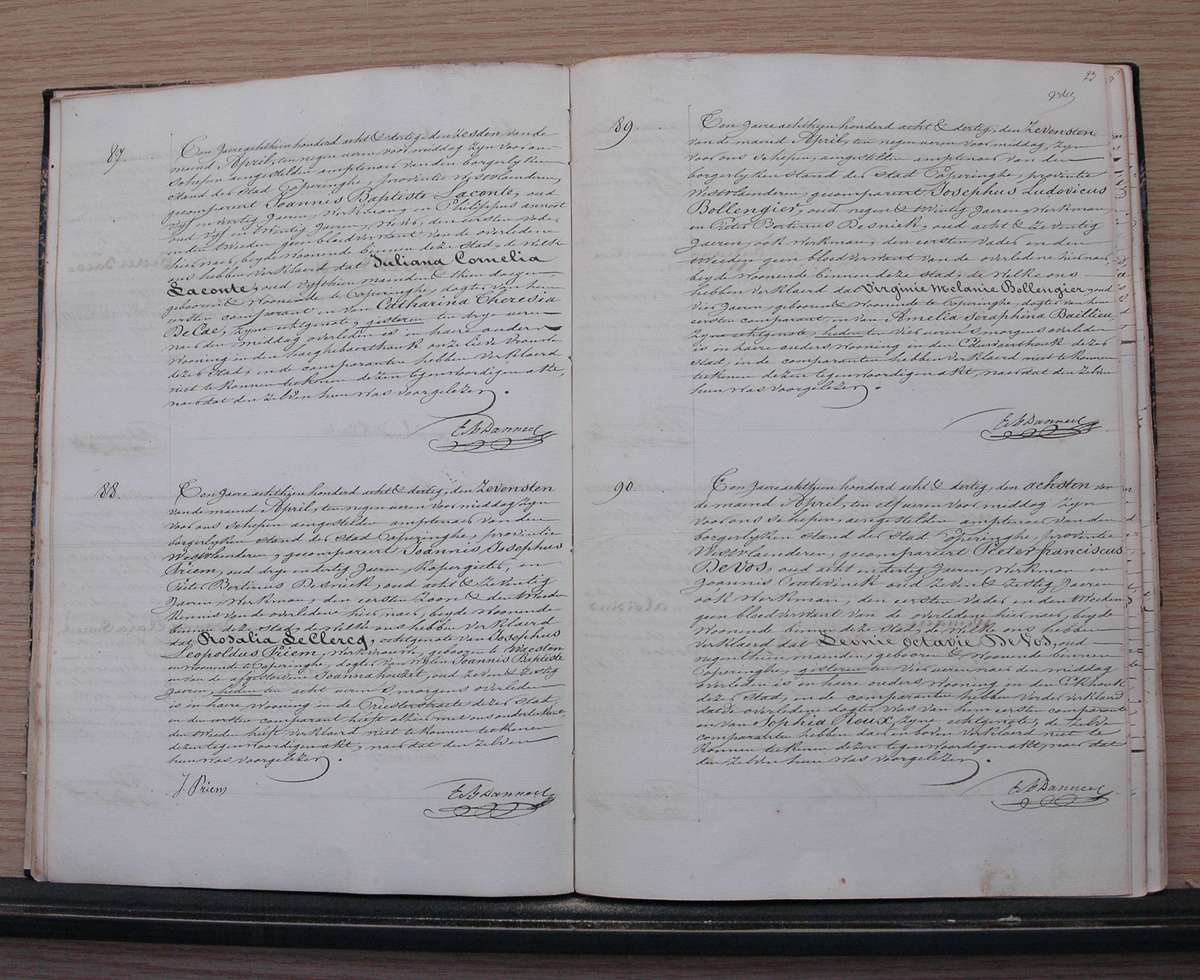 87.
Ten Jaere achthien honderd acht & dertig, den zesden van de
maend April, ten negen uren voor middag zyn voor ons
Schepen aengestelden amptenaer van den borgerlyken
stand der Stad Poperinghe, provintie Westvlaenderen,
gecompareert Joannis Baptiste Laconte, oud
vyf en dertig Jaeren, Werkman, en Philippus
oud vyf en twintig Jaeren, den eersten Vader
en den tweeden geen bloedverwant van de overledene
hier naer, beyde woonende binnen deze Stad, de welke
ons hebben verklaerd dat Juliana Cornelia
Laconte, oud vyfthien maenden & thien daegen,
geboren & woonende te Poperinghe, dogter van hun
eersten comparant en van Catharina Theresia
De Cae, zyne echtgenote, gisteren ten drye uren
naer den middag overleden is in haere ouders
wooning in den haeghebaerthouk onze Lieve Vrouw
dezer Stad, en de comparanten hebben verklaerd
niet te konnen teekenen dezen tegenwoordigen akt,
naer dat den zelven hun was voorgelezen.
88.
Ten Jaere achthien honderd acht & dertig, den zevensten
van de maend April, ten negen uren voor middag zyn
voor ons Schepen aengestelden amptenaer van den
borgerlyken stand der Stad Poperinghe, provintie
Westvlaenderen, gecompareert Joannis Josephus
Priem, oud dry en tertig Jaeren, Kopergieter, en
Pieter Bertinus Desnick, oud acht & zeventig
Jaeren, Werkman, den eersten Zoon & den tweeden
Kennis van de overledene hier naer, beyde woonende
binnen deze Stad, de welke ons hebben verklaerd
dat Rosalia Le Clercq, echtgenote van Josephus
Leopoldus Priem, Werkvrouw, geboren te Westen
en woonende te Poperinghe, dogter van wylen Joannis Baptiste
en van de afgestorven Joanna houdet, oud zeven & zestig
Jaeren, heden ten acht uren 's morgens overleden
is in haere wooning in de Priesterstraete dezer Stad
en den eersten comparant heeft alleen met ons onderteekent,
den tweeden heeft verklaerd niet te konnen teekenen
dezen tegenwoordigen akt, naer dat den zelven
hun was voorgelezen.
J. Priem
23
89.
Ten Jaere achthien honderd acht & dertig, den zevensten
van de maend April, ten negen uren voor middag, zyn
voor ons Schepen, aengestelden amptenaer van den
borgerlyken stand der Stad Poperinghe, provintie
Westvlaenderen, gecompareert Josephus Ludovicus
Bollengier, oud negen & twintig Jaeren, Werkman,
en Pieter Bertinus Desnick, oud acht & zeventig
Jaeren, ook Werkman, den eersten Vader en den
tweeden geen bloedverwant van de overledene hier naer
beyde woonende binnen deze Stad, de welke ons
hebben verklaerd dat Virginie Melanie Bollengier, oud
vier Jaeren, geboren & woonende te Poperinghe, dogter van hun
eersten comparant en van Amelia Seraphina Baillieu
zyne echtgenote, heden ten vier uren 's morgens overleden
is in haere ouders wooning in den houk dezer
Stad, en de comparanten hebben verklaerd niet te konnen
teekenen dezen tegenwoordigen akt, naer dat den zelven
hun was voorgelezen.
90.
Ten Jaere achthien honderd acht & dertig, den achsten van
de maend April, ten elf uren voor middag zyn
voor ons Schepen, aengestelden amptenaer van den
borgerlyken stand der Stad Poperinghe, provintie
Westvlaenderen, gecompareert Pieter franciscus
De Vos, oud acht en tertig Jaeren, Werkman en
Joannis oud zeven & zestig Jaeren
ook Werkman, den eersten Vader en den tweeden
geen bloedverwant van de overledene hier naer, beyde
woonende binnen deze Stad, de welke hebben
verklaerd dat Leonie Octavie De Vos, oud
negenthien maenden, geboren & woonende binnen
Poperinghe, gisteren ten vier uren naer den middag
overleden is in haere ouders wooning in den houk
dezer Stad, en de comparanten hebben verder verklaerd
dat de overledene dogter was van hun eersten comparant
en van Sophia Reux, zyne echtgenote, de zelve
comparanten hebben daer en boven verklaerd niet te
konnen teekenen dezen tegenwoordigen akt, naer dat
den zelven hun was voorgelezen.